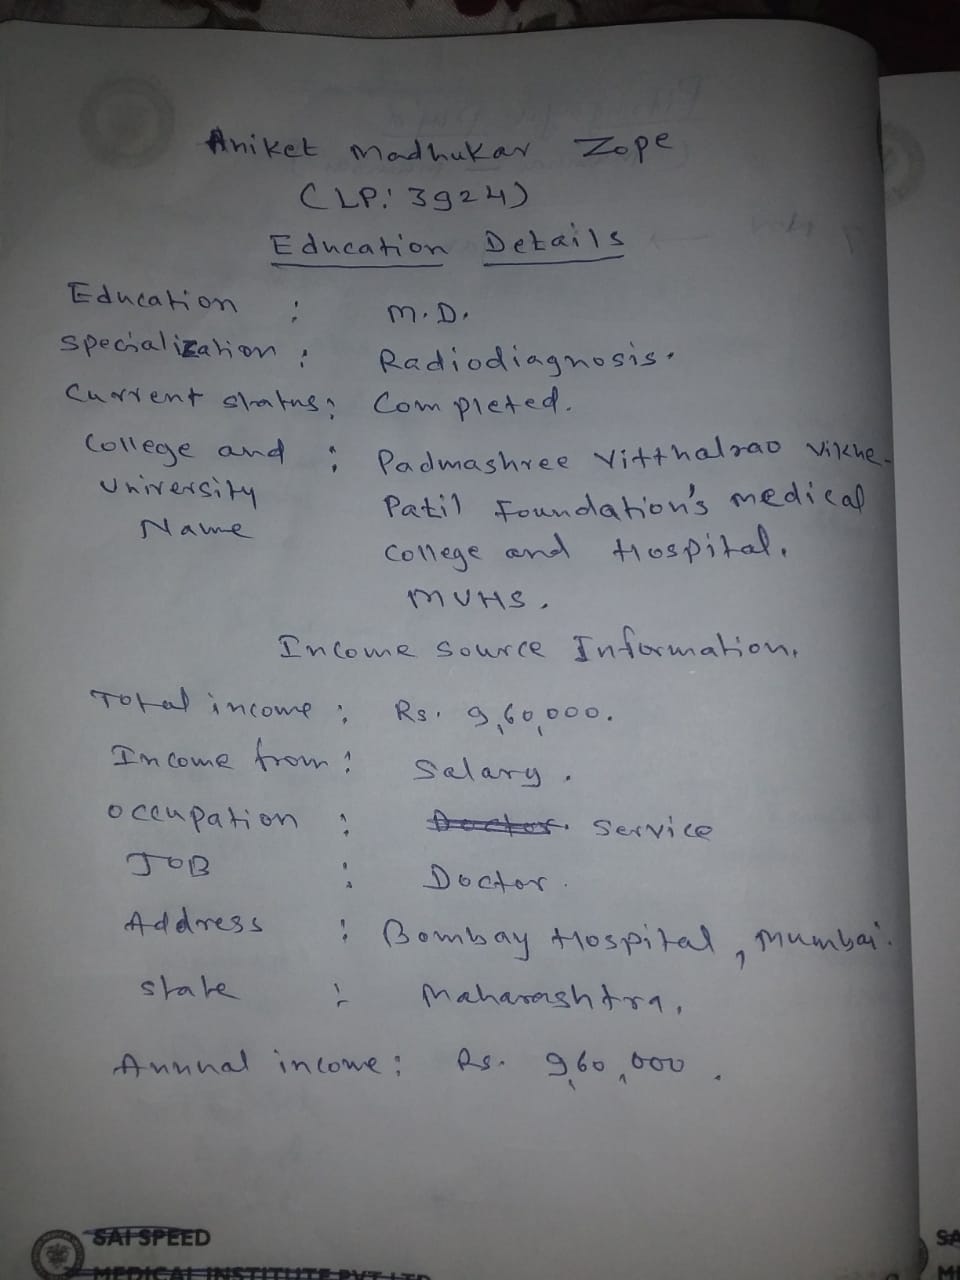 Aniket Madhukar Zope
(LP: 3924)
Education Details
Education : M.D.
Specialization : Radiodiagnosis.
Current status: Completed.
College and : Padmashree Vitthalrao Vikhe-
University Patil Foundation's medical
Name College and Hospital.
MUHS.
Income Source Information.
Total income : Rs. 9,60,000.
Income from : Salary.
Occupation : Doctor. Service
JOB : Doctor.
Address : Bombay Hospital, Mumbai.
State : Maharashtra.
Annual income : Rs. 9,60,000.
SAI SPEED
MEDICAL INSTITUTE PVT LTD
SA
M